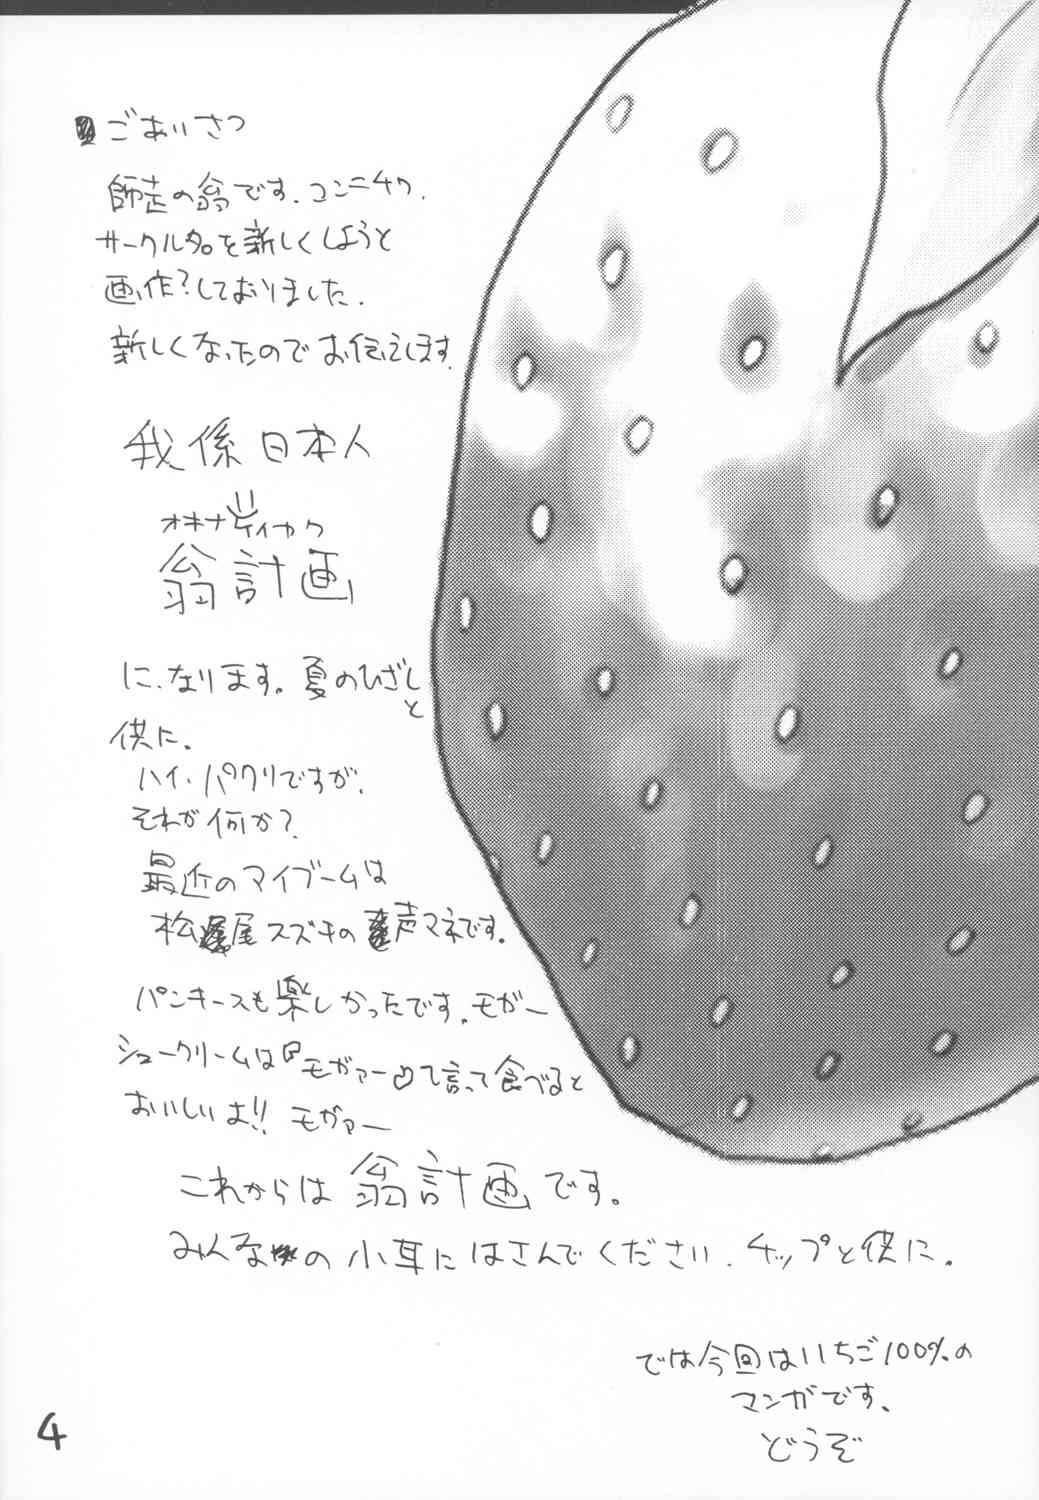 ごあいさつ
師走の翁です．コンニチワ．
サークル名を新しくしようと
画作?しておりました．
新しくなったので お伝えします．
我係 日本人
オキナケイカク
翁計画
に、なります。夏のひざしと
供に．
ハイ、パクリですが、
それが何か?
最近のマイブームは
松尾スズキの声マネです．
パンキースも楽しかったです．モガー
シュークリームは『モガァー』て言って食べると
おいしいよ!! モガァー
これからは 翁計画 です。
みんなの 小耳に はさんでください．チップと供に．
では今回はいちご100%の
マンガです、
どうぞ
4